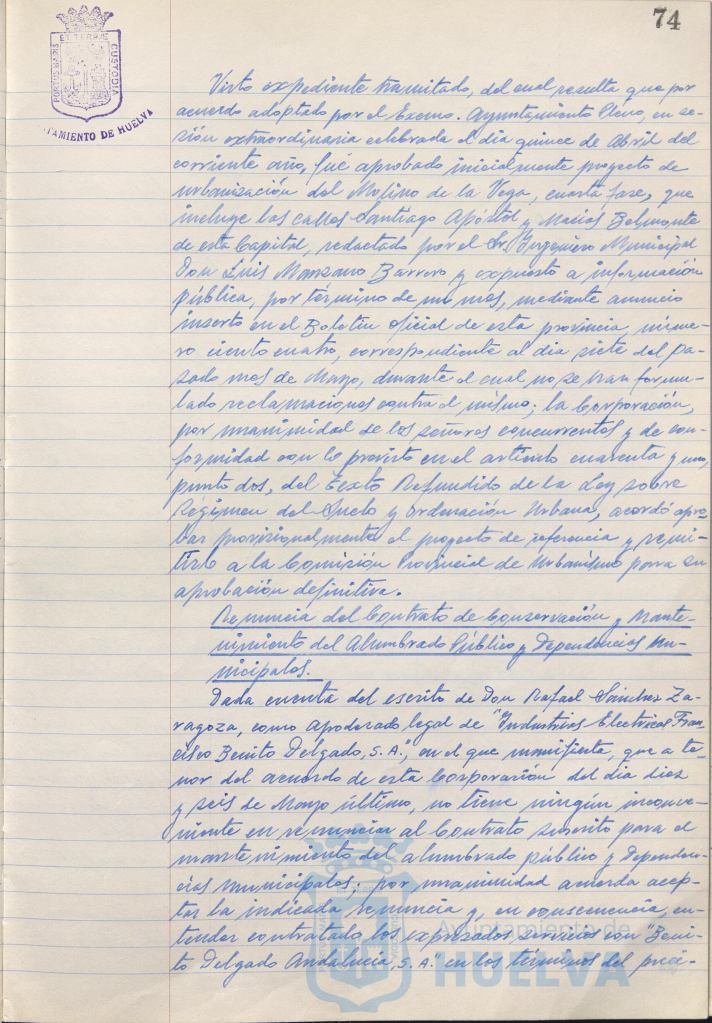 74
PORTUS MARIS ET TERRAE CUSTODIA
AYUNTAMIENTO DE HUELVA
Visto expediente tramitado, del cual resulta que por
acuerdo adoptado por el Excmo. Ayuntamiento Pleno, en se-
sión extraordinaria celebrada el día quince de Abril del
corriente año, fué aprobado inicialmente proyecto de
urbanización del Molino de la Vega, cuarta fase, que
incluye las calles Santiago Apóstol y Macías Belmonte
de esta Capital, redactado por el Sr. Ingeniero Municipal
Don Luis Manzano Barrero y expuesto a información
pública, por término de un mes, mediante anuncio
inserto en el Boletín Oficial de esta provincia, núme-
ro ciento cuatro, correspondiente al día siete del pa-
sado mes de Mayo, durante el cual no se han formu-
lado reclamaciones contra el mismo; la Corporación,
por unanimidad de los señores concurrentes y de con-
formidad con lo previsto en el artículo cuarenta y uno,
punto dos, del Texto Refundido de la Ley sobre
Régimen del Suelo y Ordenación Urbana, acordó apro-
bar provisionalmente el proyecto de referencia y remi-
tirlo a la Comisión Provincial de Urbanismo para su
aprobación definitiva.
Renuncia del Contrato de Conservación y Mante-
nimiento del Alumbrado Público y Dependencias Mu-
nicipales.
Dada cuenta del escrito de Don Rafael Sánchez Za-
ragoza, como apoderado legal de "Industrias Electricas Fran-
cisco Benito Delgado, S.A.", en el que manifiesta, que a te-
nor del acuerdo de esta Corporación del día diez
y seis de Mayo último, no tiene ningún inconve-
niente en renunciar al Contrato suscrito para el
mantenimiento del alumbrado público y Dependen-
cias Municipales; por unanimidad acuerda acep-
tar la indicada renuncia y, en consecuencia, en-
tender contratado los expresados servicios con "Beni-
to Delgado Andalucía, S.A." en los términos del preci-
Ayuntamiento de
HUELVA